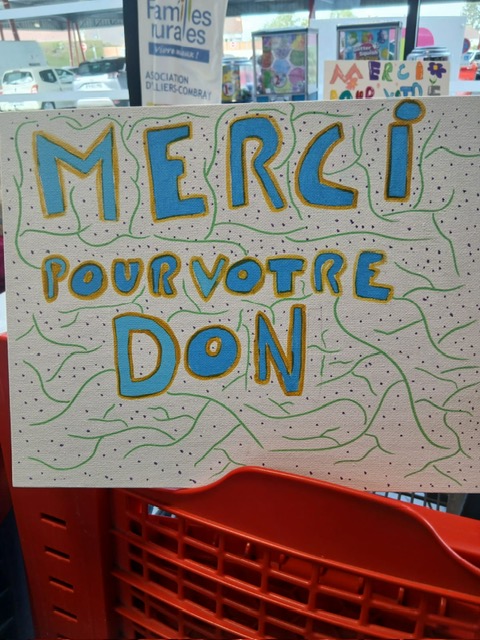 Familles
rurales
Vivre mieux !
ASSOCIATION
D'ILLIERS-COMBRAY
MERCI
POUR VOTRE
MERCi
POUR VOTRE
DON